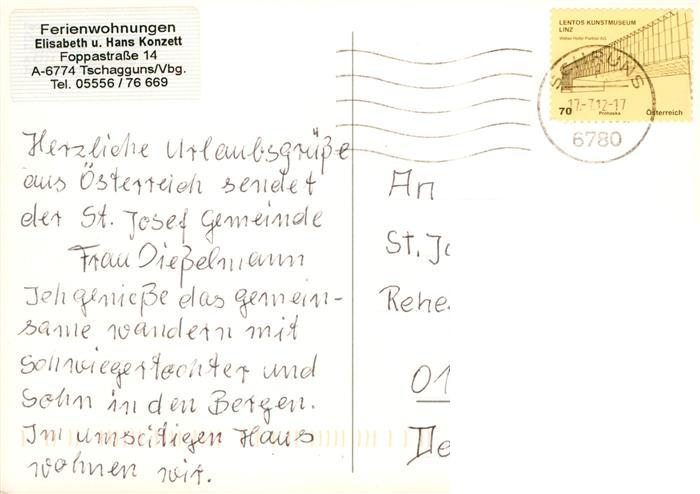 Ferienwohnungen
Elisabeth u. Hans Konzett
Foppastraße 14
A-6774 Tschagguns/Vbg.
Tel. 05556 / 76 669
LENTOS KUNSTMUSEUM
LINZ
Weber Hofer Partner AG
70
Prohaska
Österreich
SCHRUNS
17.-7.12-17
6780
Herzliche Urlaubsgrüße
aus Österreich sendet
der St. Josef Gemeinde
Frau Dießelmann
Ich genieße das gemein-
same wandern mit
Schwiegertochter und
Sohn in den Bergen.
Im umseitigen Haus
wohnen wir.
An
St. Jo
Rehe
01
De